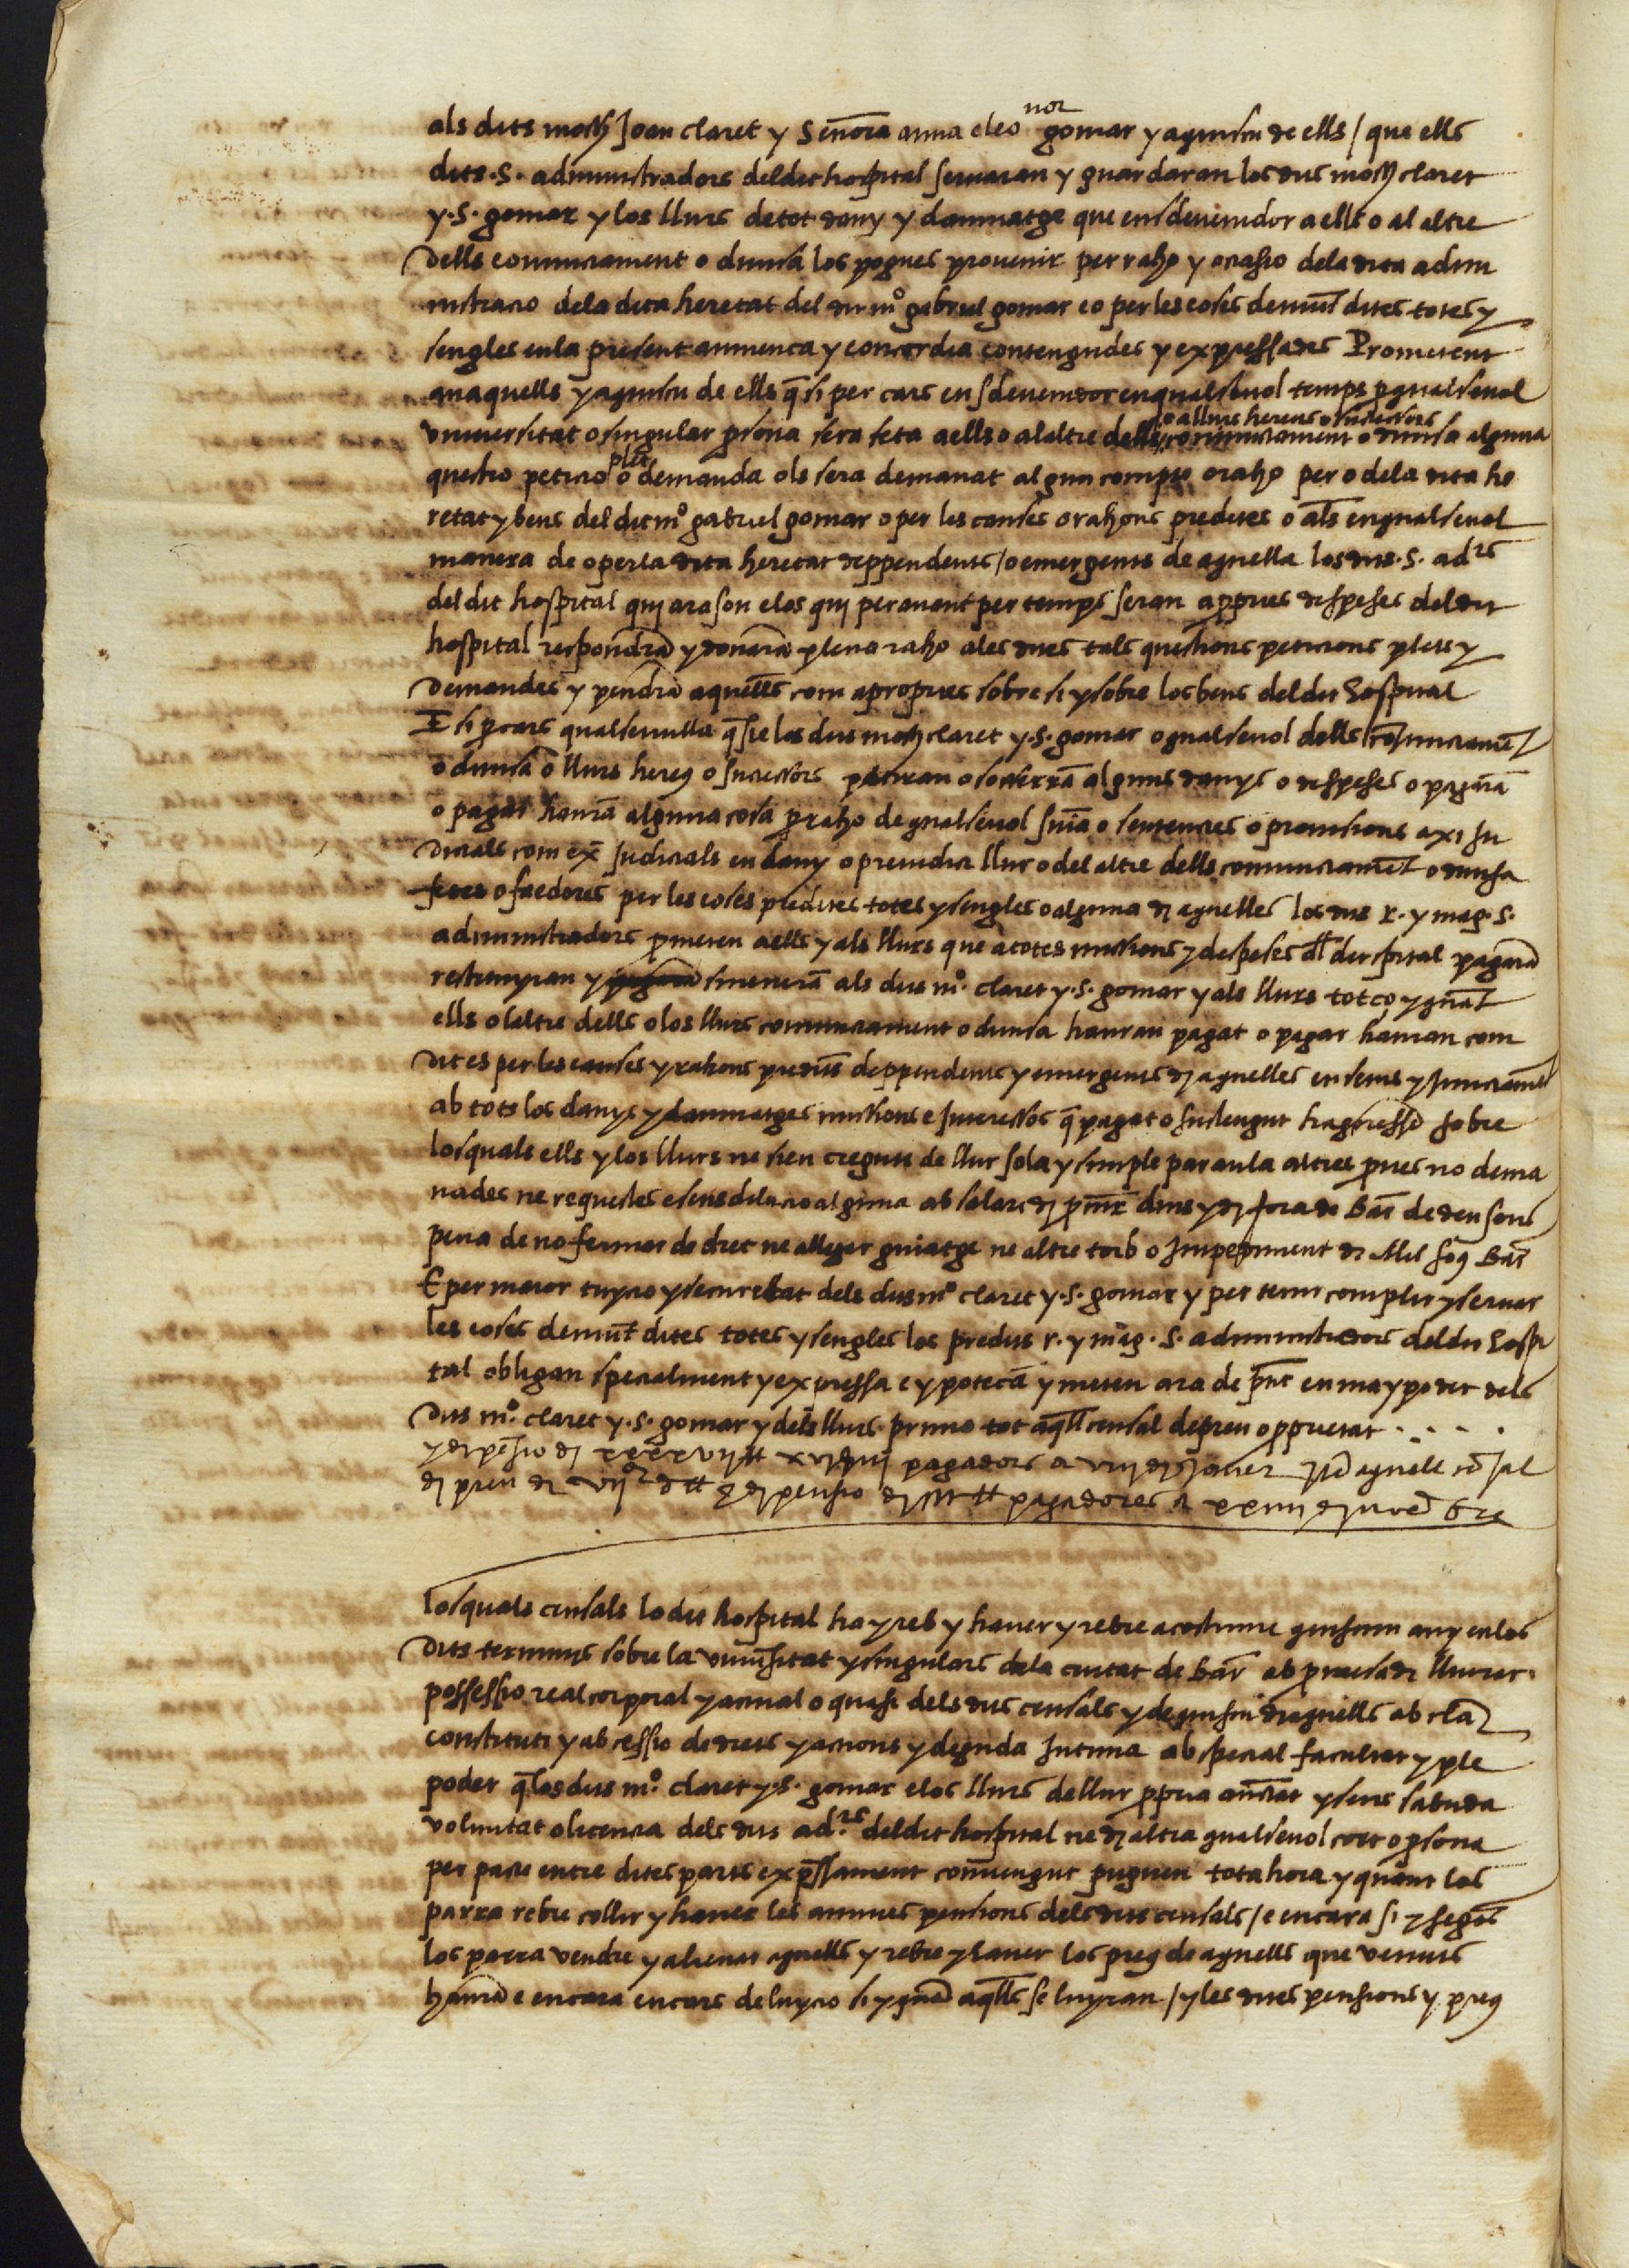 als dits moss Joan claret y Señora anna eleonor gomar y a quiscu de ells / que ells
dits .S. administradors del dit hospital servaran y guardaran los dits moss claret
y .S. gomar y los llurs de tot dany y dannatge que en sdevenidor a ells o al altre
dells conjunctament o divisa los pogues provenir per raho y ocasio dela dita admi
nistracio dela dita heretat del dit mº gabriel gomar eo per les coses demunt dites totes y
sengles en la present avinença y concordia contengudes y expressades Prometent
an aquells y a quiscu de ells q̄ si per cars en sdevenidor en qualsevol temps p qualsevol
universitat o singular psona sera feta a ells o al altre dells o a llurs hereus o successors conjunctament o divisa alguna
questio peticio plet o demanda o ls sera demanat algun compte o raho per o dela dita he
retat y bens del dit mº gabriel gomar o per les causes o rahons predites o als en qualsevol
manera de o per la dita heretat deppendents / o emergents de aquella los dits .S. adrs
del dit hospital qui ara son e los qui per avant per temps seran a ppries despeses del dit
hospital respondrā y donarā plena raho a les dites tals questions peticions plets y
demandes y pendrā aquells com a propries sobre si y sobre los bens del dit Hospital
E si p cars qualsevulla q̄ sie los dits moss claret y .S. gomar o qualsevol dells conjunctament
o divisa o llurs hereus o successors patiran o sostendrā alguns danys o despeses o pagarā
o pagar haurā alguna cosa p raho de qualsevol snīa o sentencies o provisions axi ju
dicials com ex judicials en dany o prejudici llur o del altre dells conjunctamēt o divisa
fetes o faedores per les coses predites totes y sengles o alguna de aquelles los dits r. y mag. S.
administradors pmeten a ells y als llurs que a totes missions y despeses dl dit spital pagarā
restituyran y smenerā als dits mº. claret y .S. gomar y als llurs tot ço y quāt
ells o laltre dells o los llurs conjunctament o divisa hauran pagat o pagar hauran com
dit es per les causes y rahons predits deppendents y emergents de aquelles ensems y junctamēt
ab tots los danys y dannatges missions e Interessos q̄ pagat o sustengut hagessē sobre
los quals ells y los llurs ne sien creguts de llur sola y simple paraula altres pves no dema
nades ne requestes e sens dilacio alguna ab salari de pcur dins y de fora de Bar de deu sous
pena de no fermar de dret ne allegar guiatge ne altre torb o Impediment de Mil sos Bar
E per maior tuycio y securetat dels dits mº claret y .S. gomar y per tenir complir y servar
les coses demūt dites totes y sengles los predits r. y mag. S. administradors del dit Hospi
tal obligan specialment y expressa e ypotecā y meten ara de pnt en ma y poder dels
dits mº. claret y .S. gomar y dels llurs primo tot aqll censal de preu o pprietat . . . .
y de pēsio de pagadors a viiij de Janer Itē aquell cēsal
de preu de y de pensio de pagadores a xxiiij de juvēbre
los quals censals lo dit hospital ha y reb y haver y rebre acostume quiscun any en los
dits termens sobre la universitat y singulars dela ciutat de Bar ab pmesa de lliurar
possessio real corporal y actual o quasi dels dits censals y de quiscu de aquells ab cla
constituti y ab cessio de drets y actions y deguda Intima ab special facultat y ple
poder q̄ los dits mº. claret y .S. gomar e los llurs de llur ppria auctat y sens sabuda
voluntat o licencia dels dits adrs del dit hospital ne de altra qualsevol cort o psona
per pacte entre dites parts exp̄ssament convengut puguen tota hora y quant los
parra rebre collir y haver les annues pensions dels dits censals / e encara si y segōs
los parra vendre y alienar aquells y rebre y haver los preus de aquells que venuts
haurā e encara en cars de luycio si y quā aqlls se luyran / y les dites pensions y preus